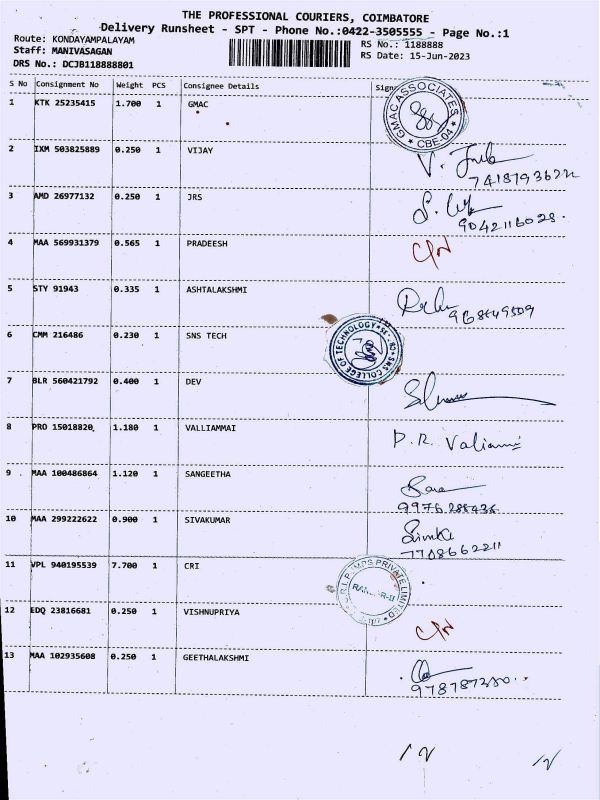 THE PROFESSIONAL COURIERS, COIMBATORE
Delivery Runsheet - SPT - Phone No.:0422-3505555 - Page No.:1
Route: KONDAYAMPALAYAM
Staff: MANIVASAGAN
DRS No.: DCJB118888801
RS No.: 1188888
RS Date: 15-Jun-2023
S No Consignment No Weight PCS Consignee Details Sign
1 KTK 25235415 1.700 1 GMAC
GMAC ASSOCIATES * CBE-04 *
2 IXM 503825889 0.250 1 VIJAY
3 AMD 26977132 0.250 1 JRS
9042116028.
4 MAA 569931379 0.565 1 PRADEESH
5 STY 91943 0.335 1 ASHTALAKSHMI
6 CMM 216486 0.230 1 SNS TECH
SNS COLLEGE OF TECHNOLOGY
7 BLR 560421792 0.400 1 DEV
8 PRO 15018820, 1.180 1 VALLIAMMAI
P. R. Valiammi
9 MAA 100486864 1.120 1 SANGEETHA
10 MAA 299222622 0.900 1 SIVAKUMAR
7708662211
11 VPL 940195539 7.700 1 CRI
C.R.I. PUMPS PRIVATE LIMITED
12 EDQ 23816681 0.250 1 VISHNUPRIYA
13 MAA 102935608 0.250 1 GEETHALAKSHMI